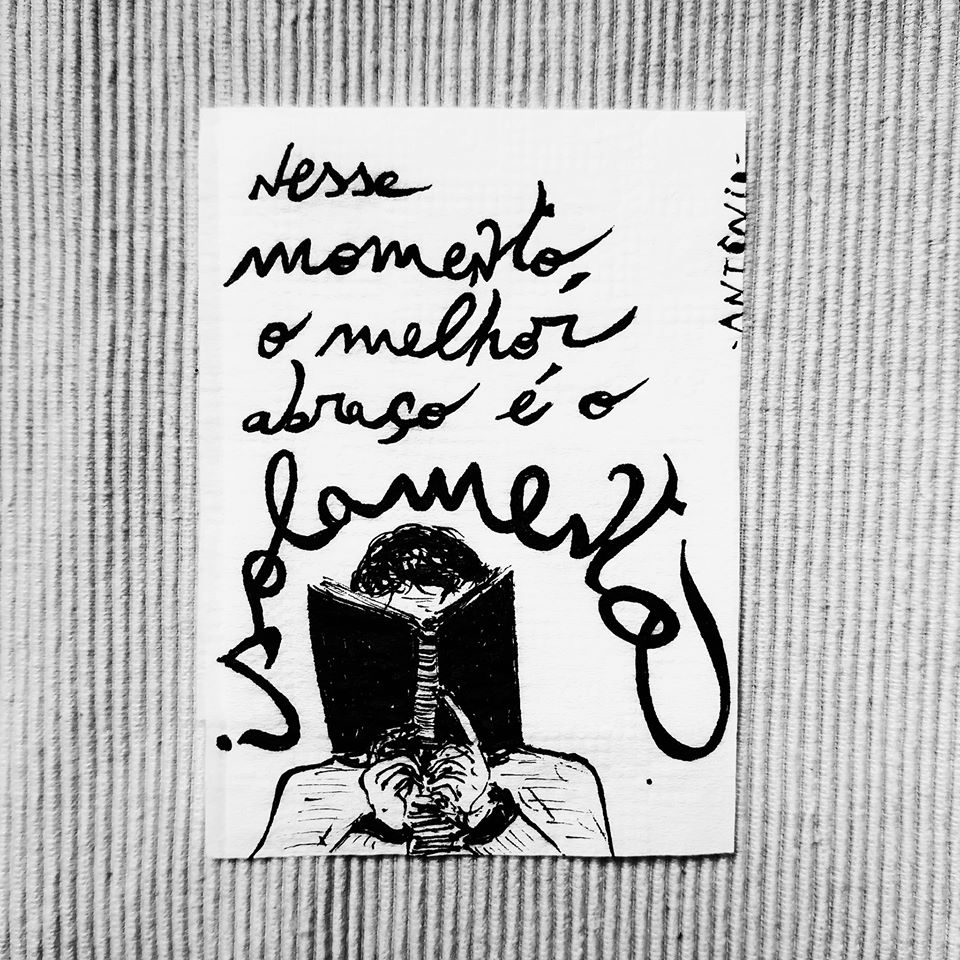 Nesse
momento,
o melhor
abraço é o
isolamento.
-ANTÔNIO-